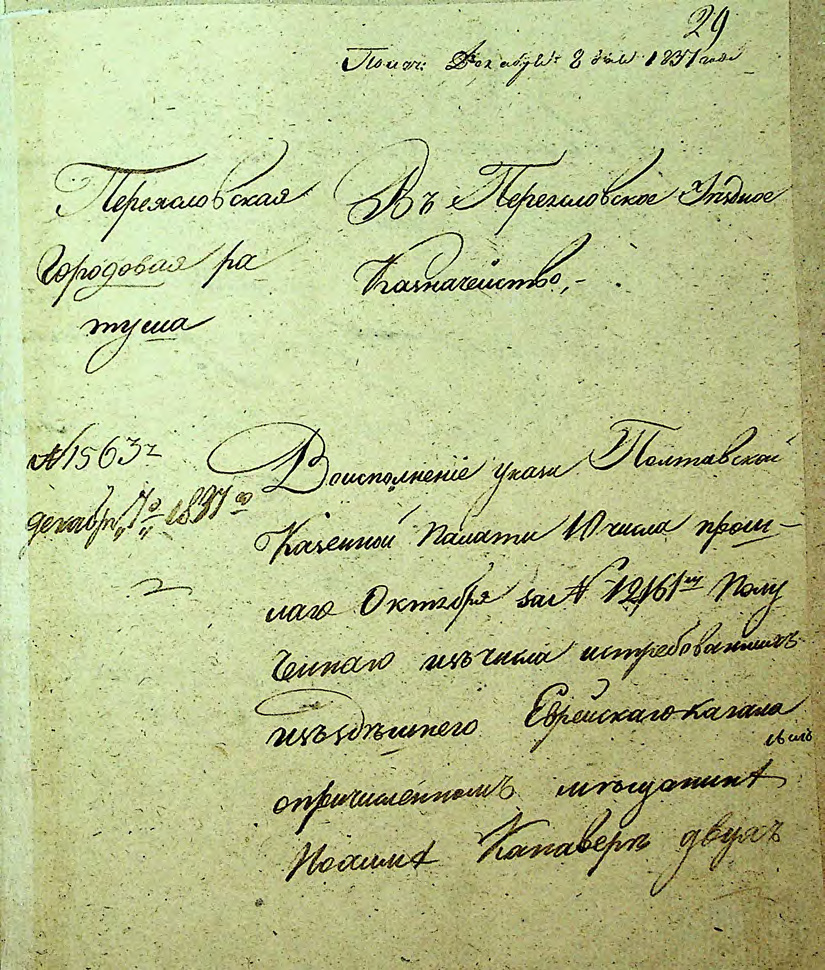 29
Получ: Декабря 8 дня 1837 года
Переясловская
Городовая ра
туша
Въ Переясловское Уѣздное
Казначейство,-
№ 1563
декабря „7го 1837го
Воисполненіе указа Полтавской
Казенной Палаты 10 числа прош-
лаго Октября за № 12161м Полу
ченнаго изъ числа истребованныхъ
изъ здѣшнего Еврейскаго кагала
опричисленномъ мѣщанинѣ
двухъ